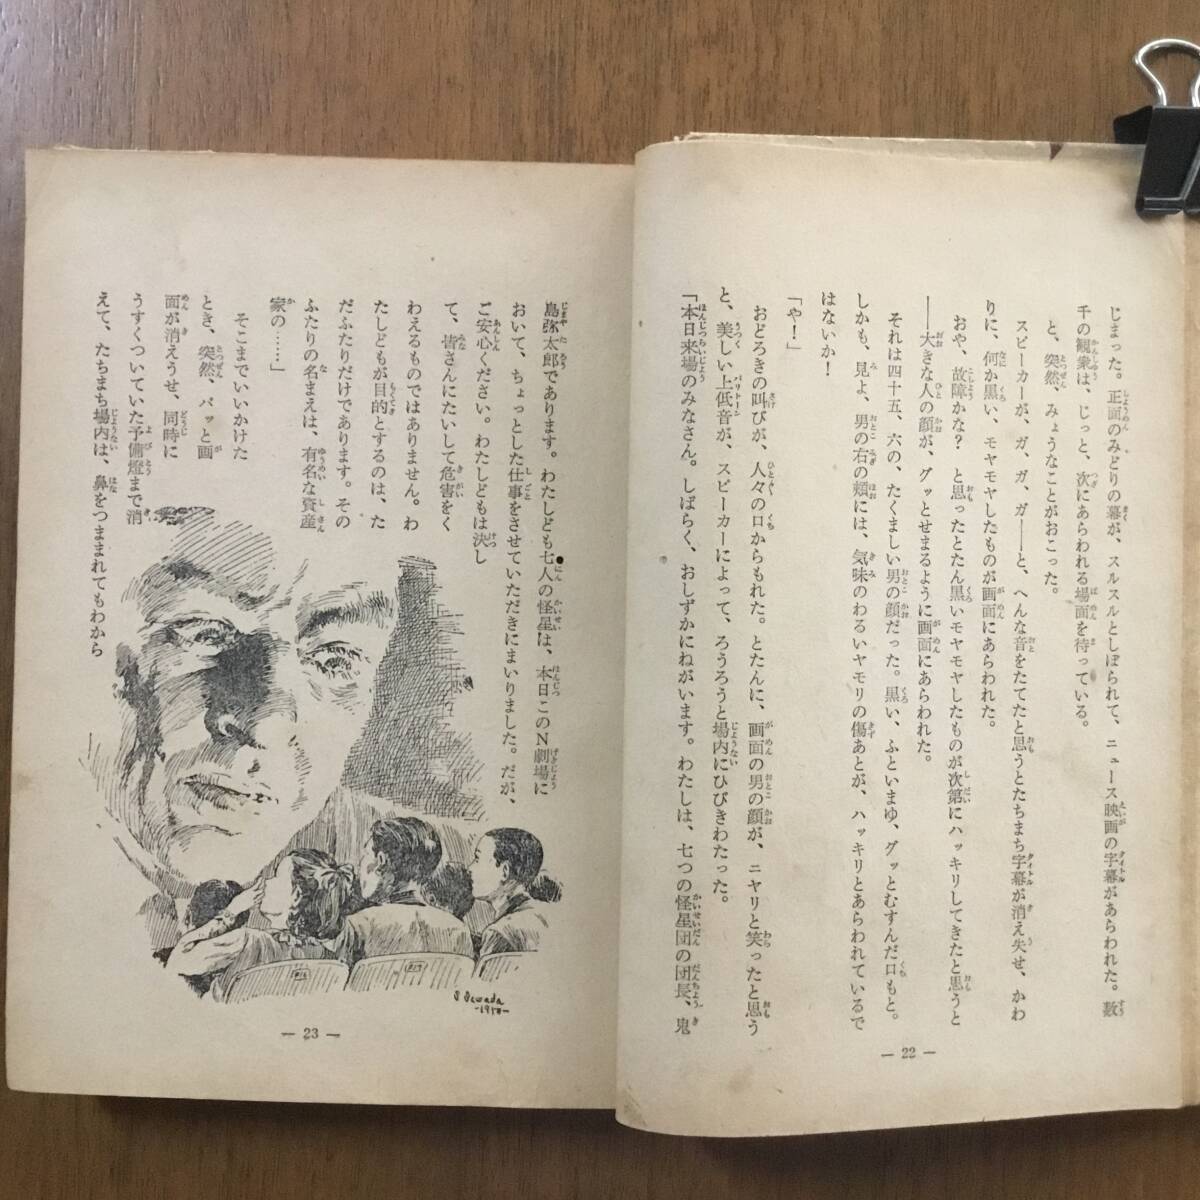 じまった。正面のみどりの幕が、スルスルとしぼられて、ニュース映画の字幕があらわれた。数
千の観衆は、じっと、次にあらわれる場面を待っている。
と、突然、みょうなことがおこった。
スピーカーが、ガ、ガ、ガ――と、へんな音をたてたと思うとたちまち字幕が消え失せ、かわ
りに、何か黒い、モヤモヤしたものが画面にあらわれた。
おや、故障かな？　と思ったとたん黒いモヤモヤしたものが次第にハッキリしてきたと思うと
――大きな人の顔が、グッとせまるように画面にあらわれた。
それは四十五、六の、たくましい男の顔だった。黒い、ふといまゆ、グッとむすんだ口もと。
しかも、見よ、男の右の頬には、気味のわるいヤモリの傷あとが、ハッキリとあらわれているで
はないか！
「や！」
おどろきの叫びが、人々の口からもれた。とたんに、画面の男の顔が、ニヤリと笑ったと思う
と、美しい上低音が、スピーカーによって、ろうろうと場内にひびきわたった。
「本日来場のみなさん。しばらく、おしずかにねがいます。わたしは、七つの怪星団の団長、鬼
― 22 ―
島弥太郎であります。わたしども七人の怪星は、本日このN劇場に
おいて、ちょっとした仕事をさせていただきにまいりました。だが、
ご安心ください。わたしどもは決し
て、皆さんにたいして危害をく
わえるものではありません。わ
たしどもが目的とするのは、た
だふたりだけであります。その
ふたりの名まえは、有名な資産
家の……」
そこまでいいかけた
とき、突然、パッと画
面が消えうせ、同時に
うすくついていた予備燈まで消
えて、たちまち場内は、鼻をつままれてもわから
― 23 ―